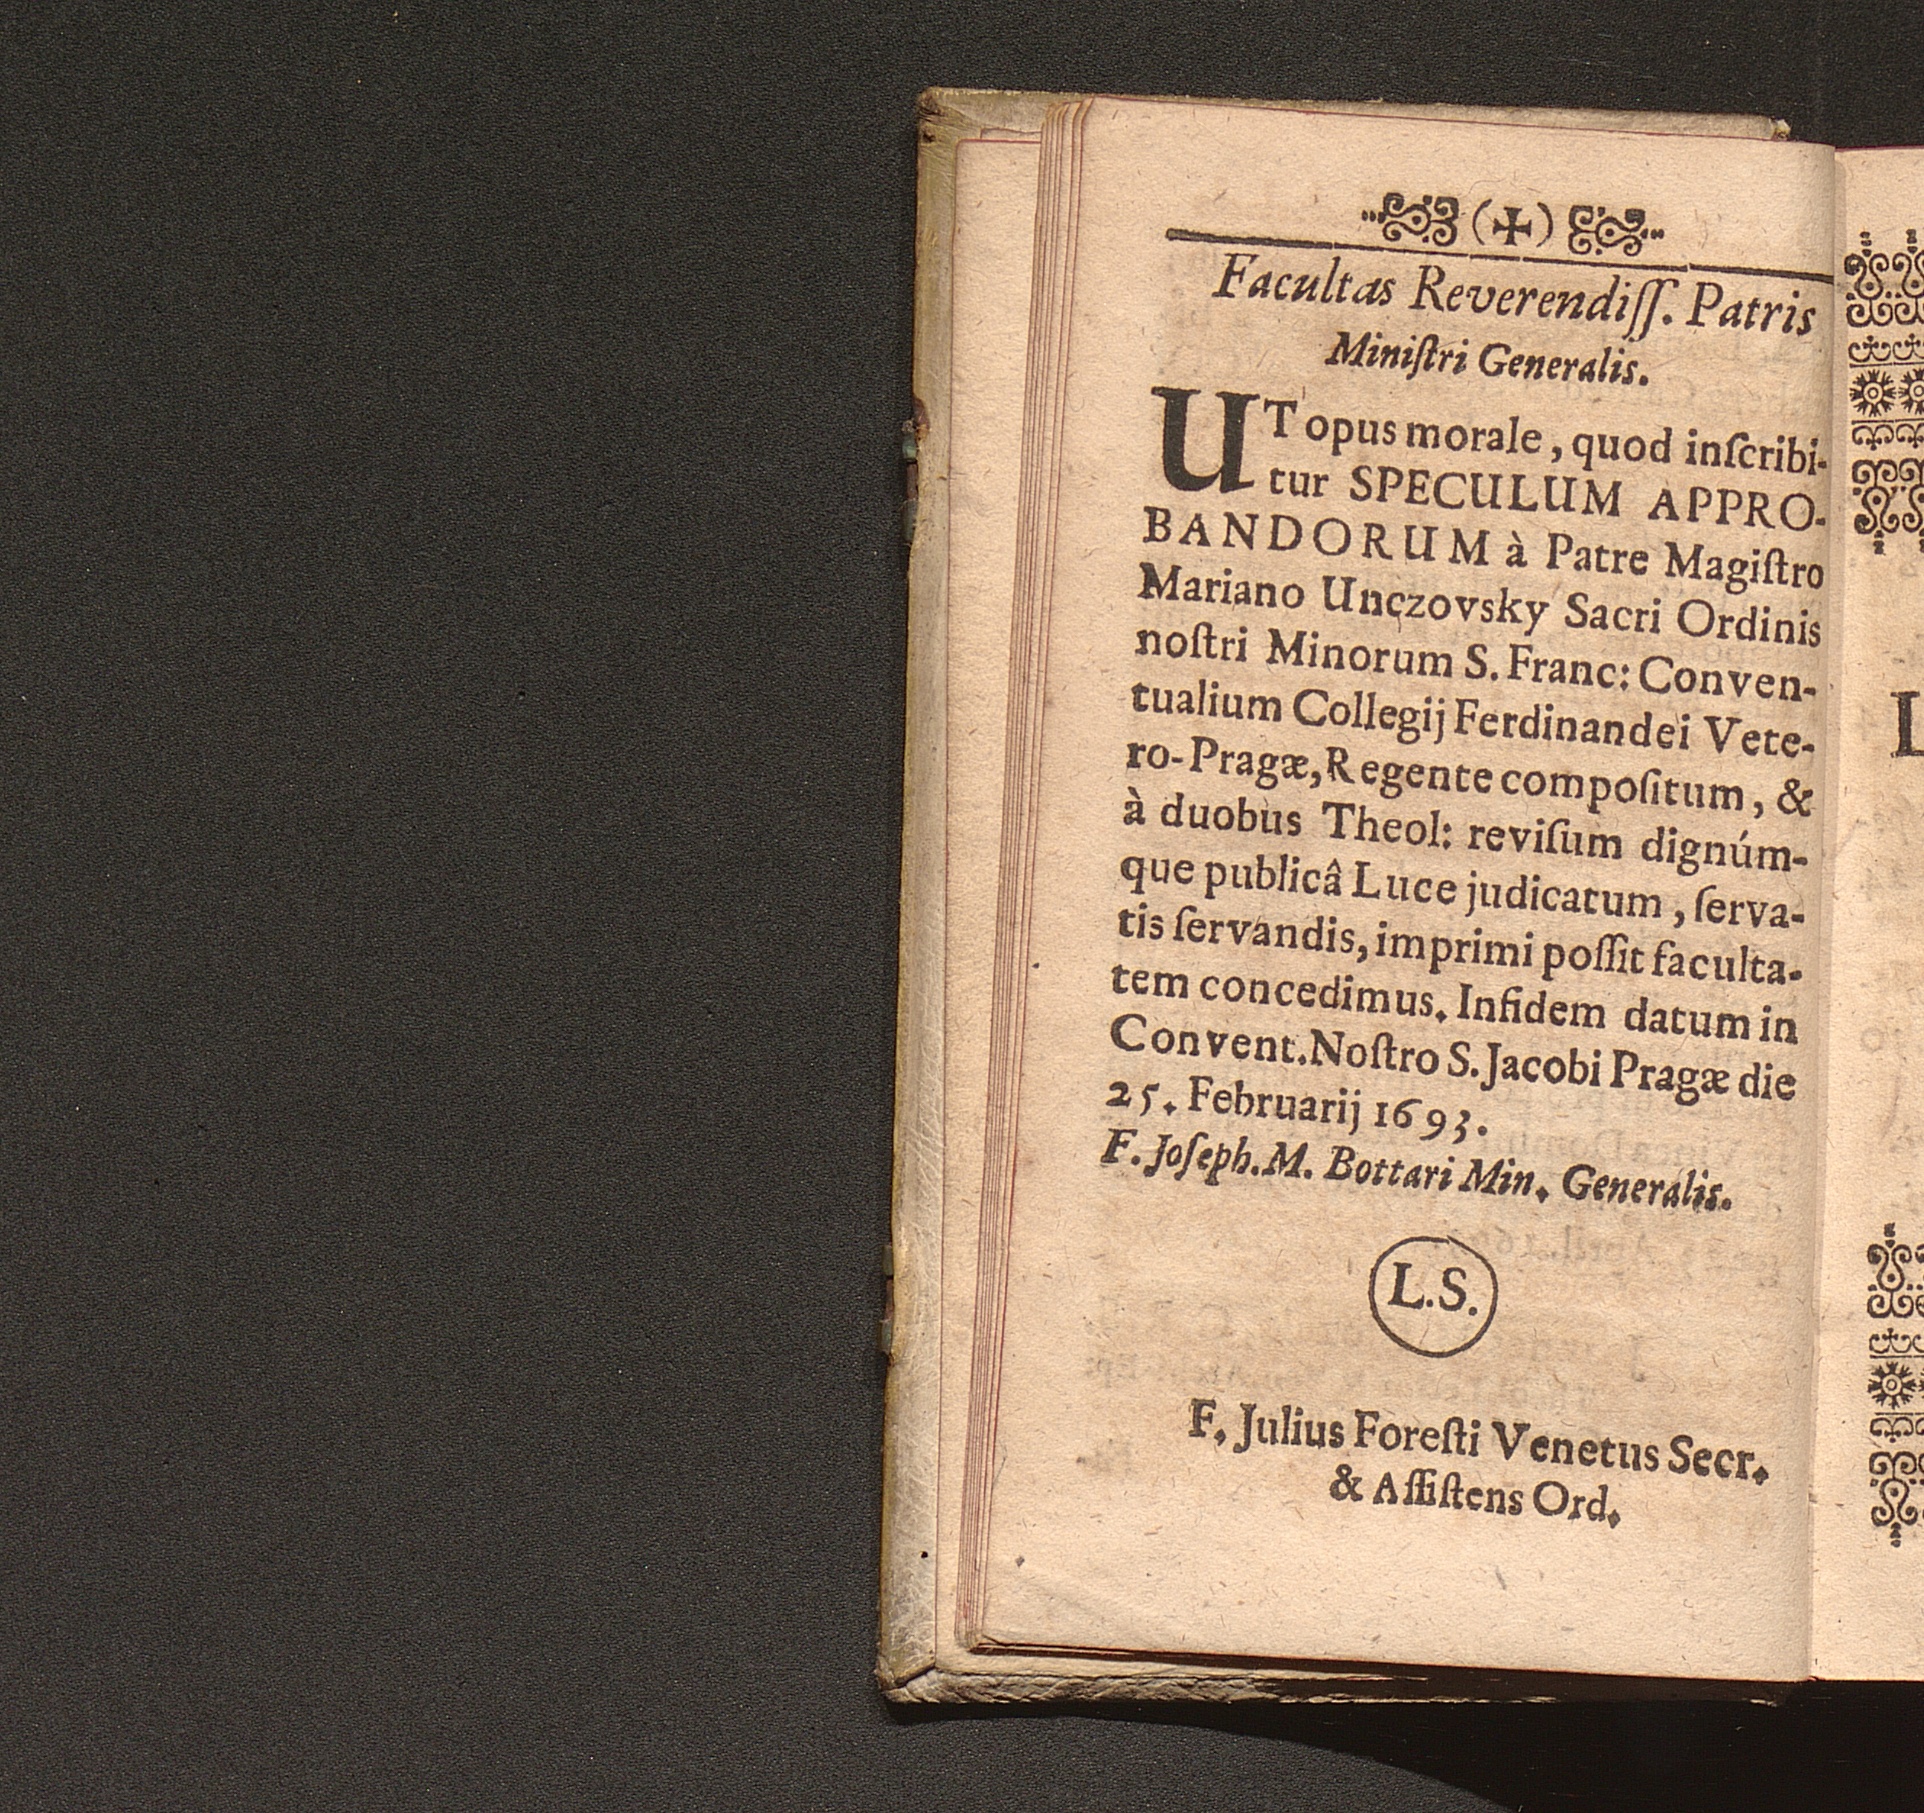 (✠)
Facultas Reverendiſſ. Patris
Miniſtri Generalis.
UT opus morale, quod inſcribi-
tur SPECULUM APPRO-
BANDORUM à Patre Magiſtro
Mariano Unczovsky Sacri Ordinis
noſtri Minorum S. Franc: Conven-
tualium Collegij Ferdinandei Vete-
ro-Pragæ, Regente compoſitum, &
à duobus Theol: reviſum dignúm-
que publicâ Luce judicatum, ſerva-
tis ſervandis, imprimi poſſit faculta-
tem concedimus. Infidem datum in
Convent. Noſtro S. Jacobi Pragæ die
25. Februarij 1693.
F. Joſeph. M. Bottari Min. Generalis.
L.S.
F. Julius Foreſti Venetus Secr.
& Aſſiſtens Ord.